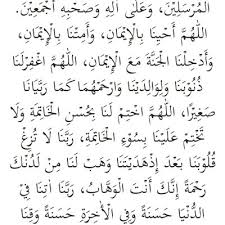 الْمُرْسَلِيْنَ، وَعَلٰى اٰلِهِ وَصَحْبِهِ أَجْمَعِيْنَ.
اَللّٰهُمَّ أَحْيِنَا بِالْإِيْمَانِ، وَأَمِتْنَا بِالْإِيْمَانِ،
وَأَدْخِلْنَا الْجَنَّةَ مَعَ الْإِيْمَانِ، اَللّٰهُمَّ اغْفِرْلَنَا
ذُنُوْبَنَا وَلِوَالِدَيْنَا وَارْحَمْهُمَا كَمَا رَبَّيَانَا
صَغِيْرًا، اَللّٰهُمَّ اخْتِمْ لَنَا بِحُسْنِ الْخَاتِمَةِ وَلَا
تَخْتِمْ عَلَيْنَا بِسُوْءِ الْخَاتِمَةِ، رَبَّنَا لَا تُزِغْ
قُلُوْبَنَا بَعْدَ إِذْهَدَيْتَنَا وَهَبْ لَنَا مِنْ لَدُنْكَ
رَحْمَةً إِنَّكَ أَنْتَ الْوَهَّابُ، رَبَّنَا اٰتِنَا فِي
الدُّنْيَا حَسَنَةً وَفِي الْاٰخِرَةِ حَسَنَةً وَقِنَا